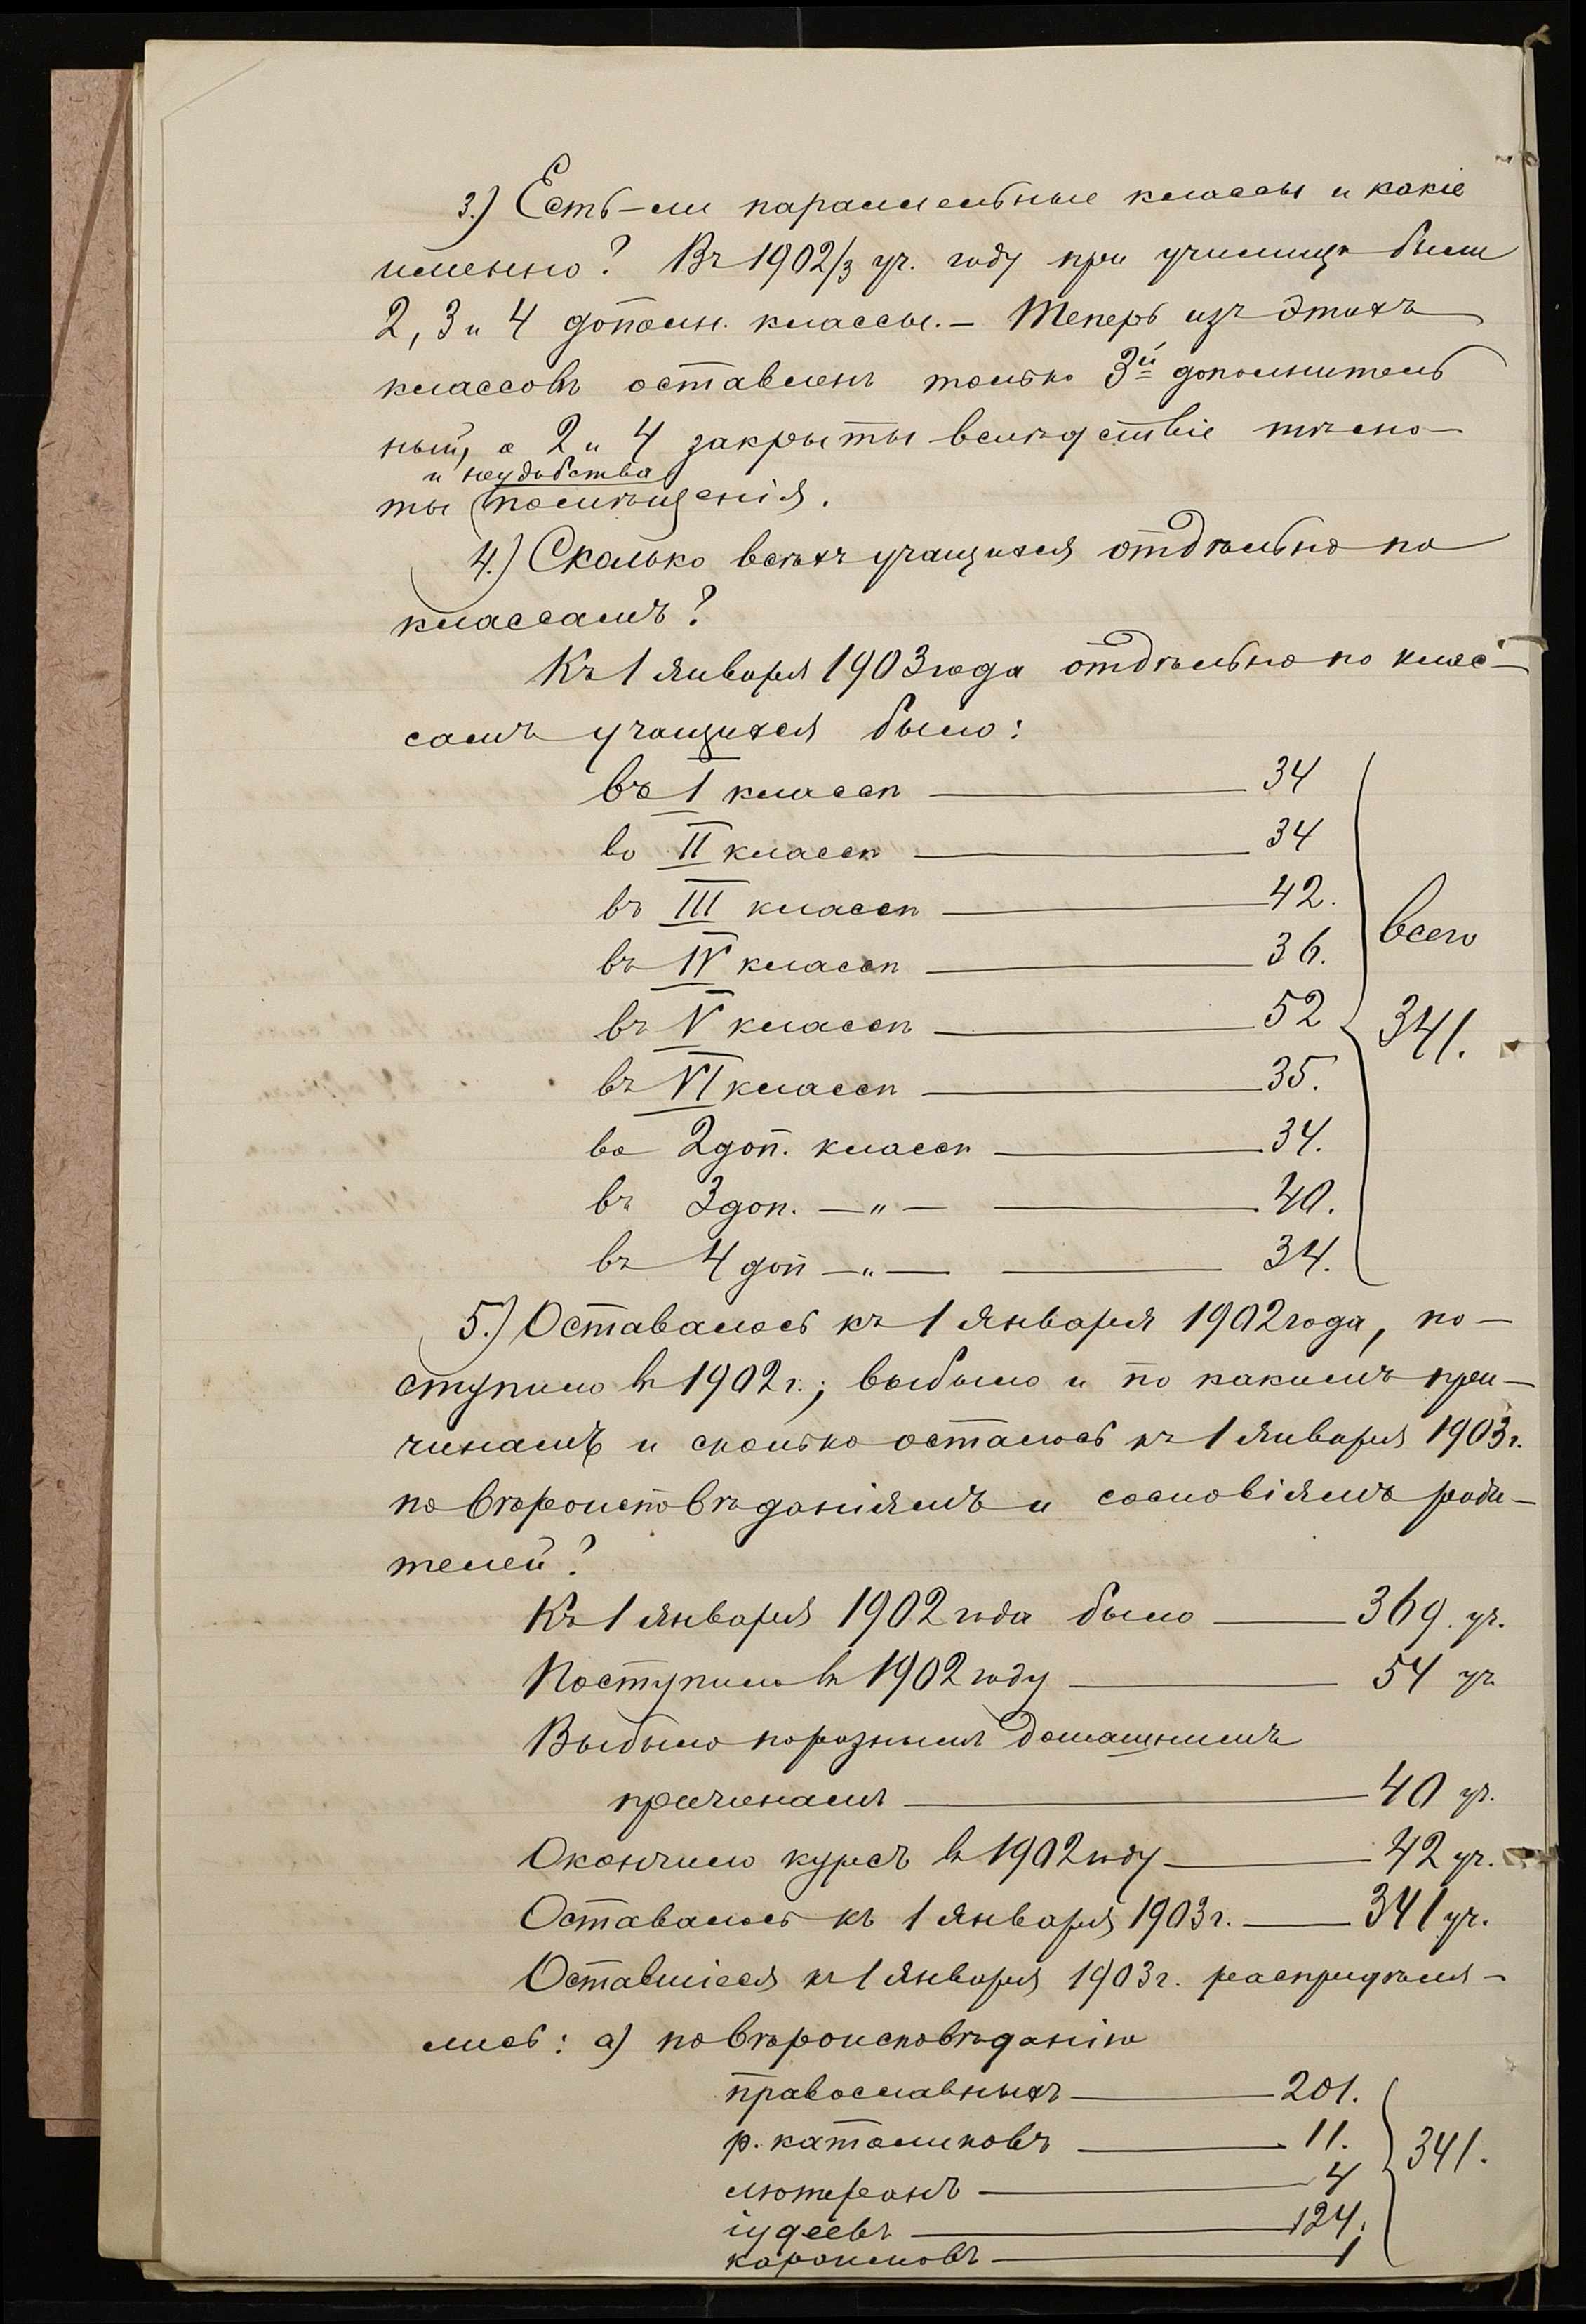 3.) Есть-ли параллельные классы и какіе
именно? Въ 1902/3 уч. году при училищѣ были
2, 3 и 4 дополн. классы. — Теперь изъ этихъ
классовъ оставленъ только 3й дополнитель
ный, а 2 и 4 закрыты вслѣдствіе тѣсно-
и неудобства
ты помѣщенія.
4.) Сколько всѣхъ учащихся отдѣльно по
классамъ?
Къ 1 Января 1903 года отдѣльно по клас-
самъ учащихся было:
въ I классѣ — 34
во II классѣ — 34
въ III классѣ — 42.
въ IV классѣ — 36.
всего
въ V классѣ — 52
341.
въ VI классѣ — 35.
во 2 доп. классѣ — 34.
въ 3 доп. —"— — 40.
въ 4 доп —"— — 34.
5.) Оставалось къ 1 Января 1902 года, по-
ступило въ 1902 г.; выбыло и по какимъ при-
чинамъ и сколько осталось къ 1 Января 1903 г.
по вѣроисповѣданіямъ и сословіямъ роди-
телей?
Къ 1 Января 1902 года было — 369. уч.
Поступило въ 1902 году — 54 уч
Выбыло по разнымъ домашнимъ
причинамъ — 40 уч.
Окончило курсъ въ 1902 году — 42 уч.
Оставалось къ 1 Января 1903 г. — 341 уч.
Оставшіеся къ 1 Января 1903 г. распредѣля-
лись: а) по вѣроисповѣданію
православныхъ — 201.
р. католиковъ — 11.
341.
лютеранъ — 4
іудеевъ — 124.
караимовъ — 1